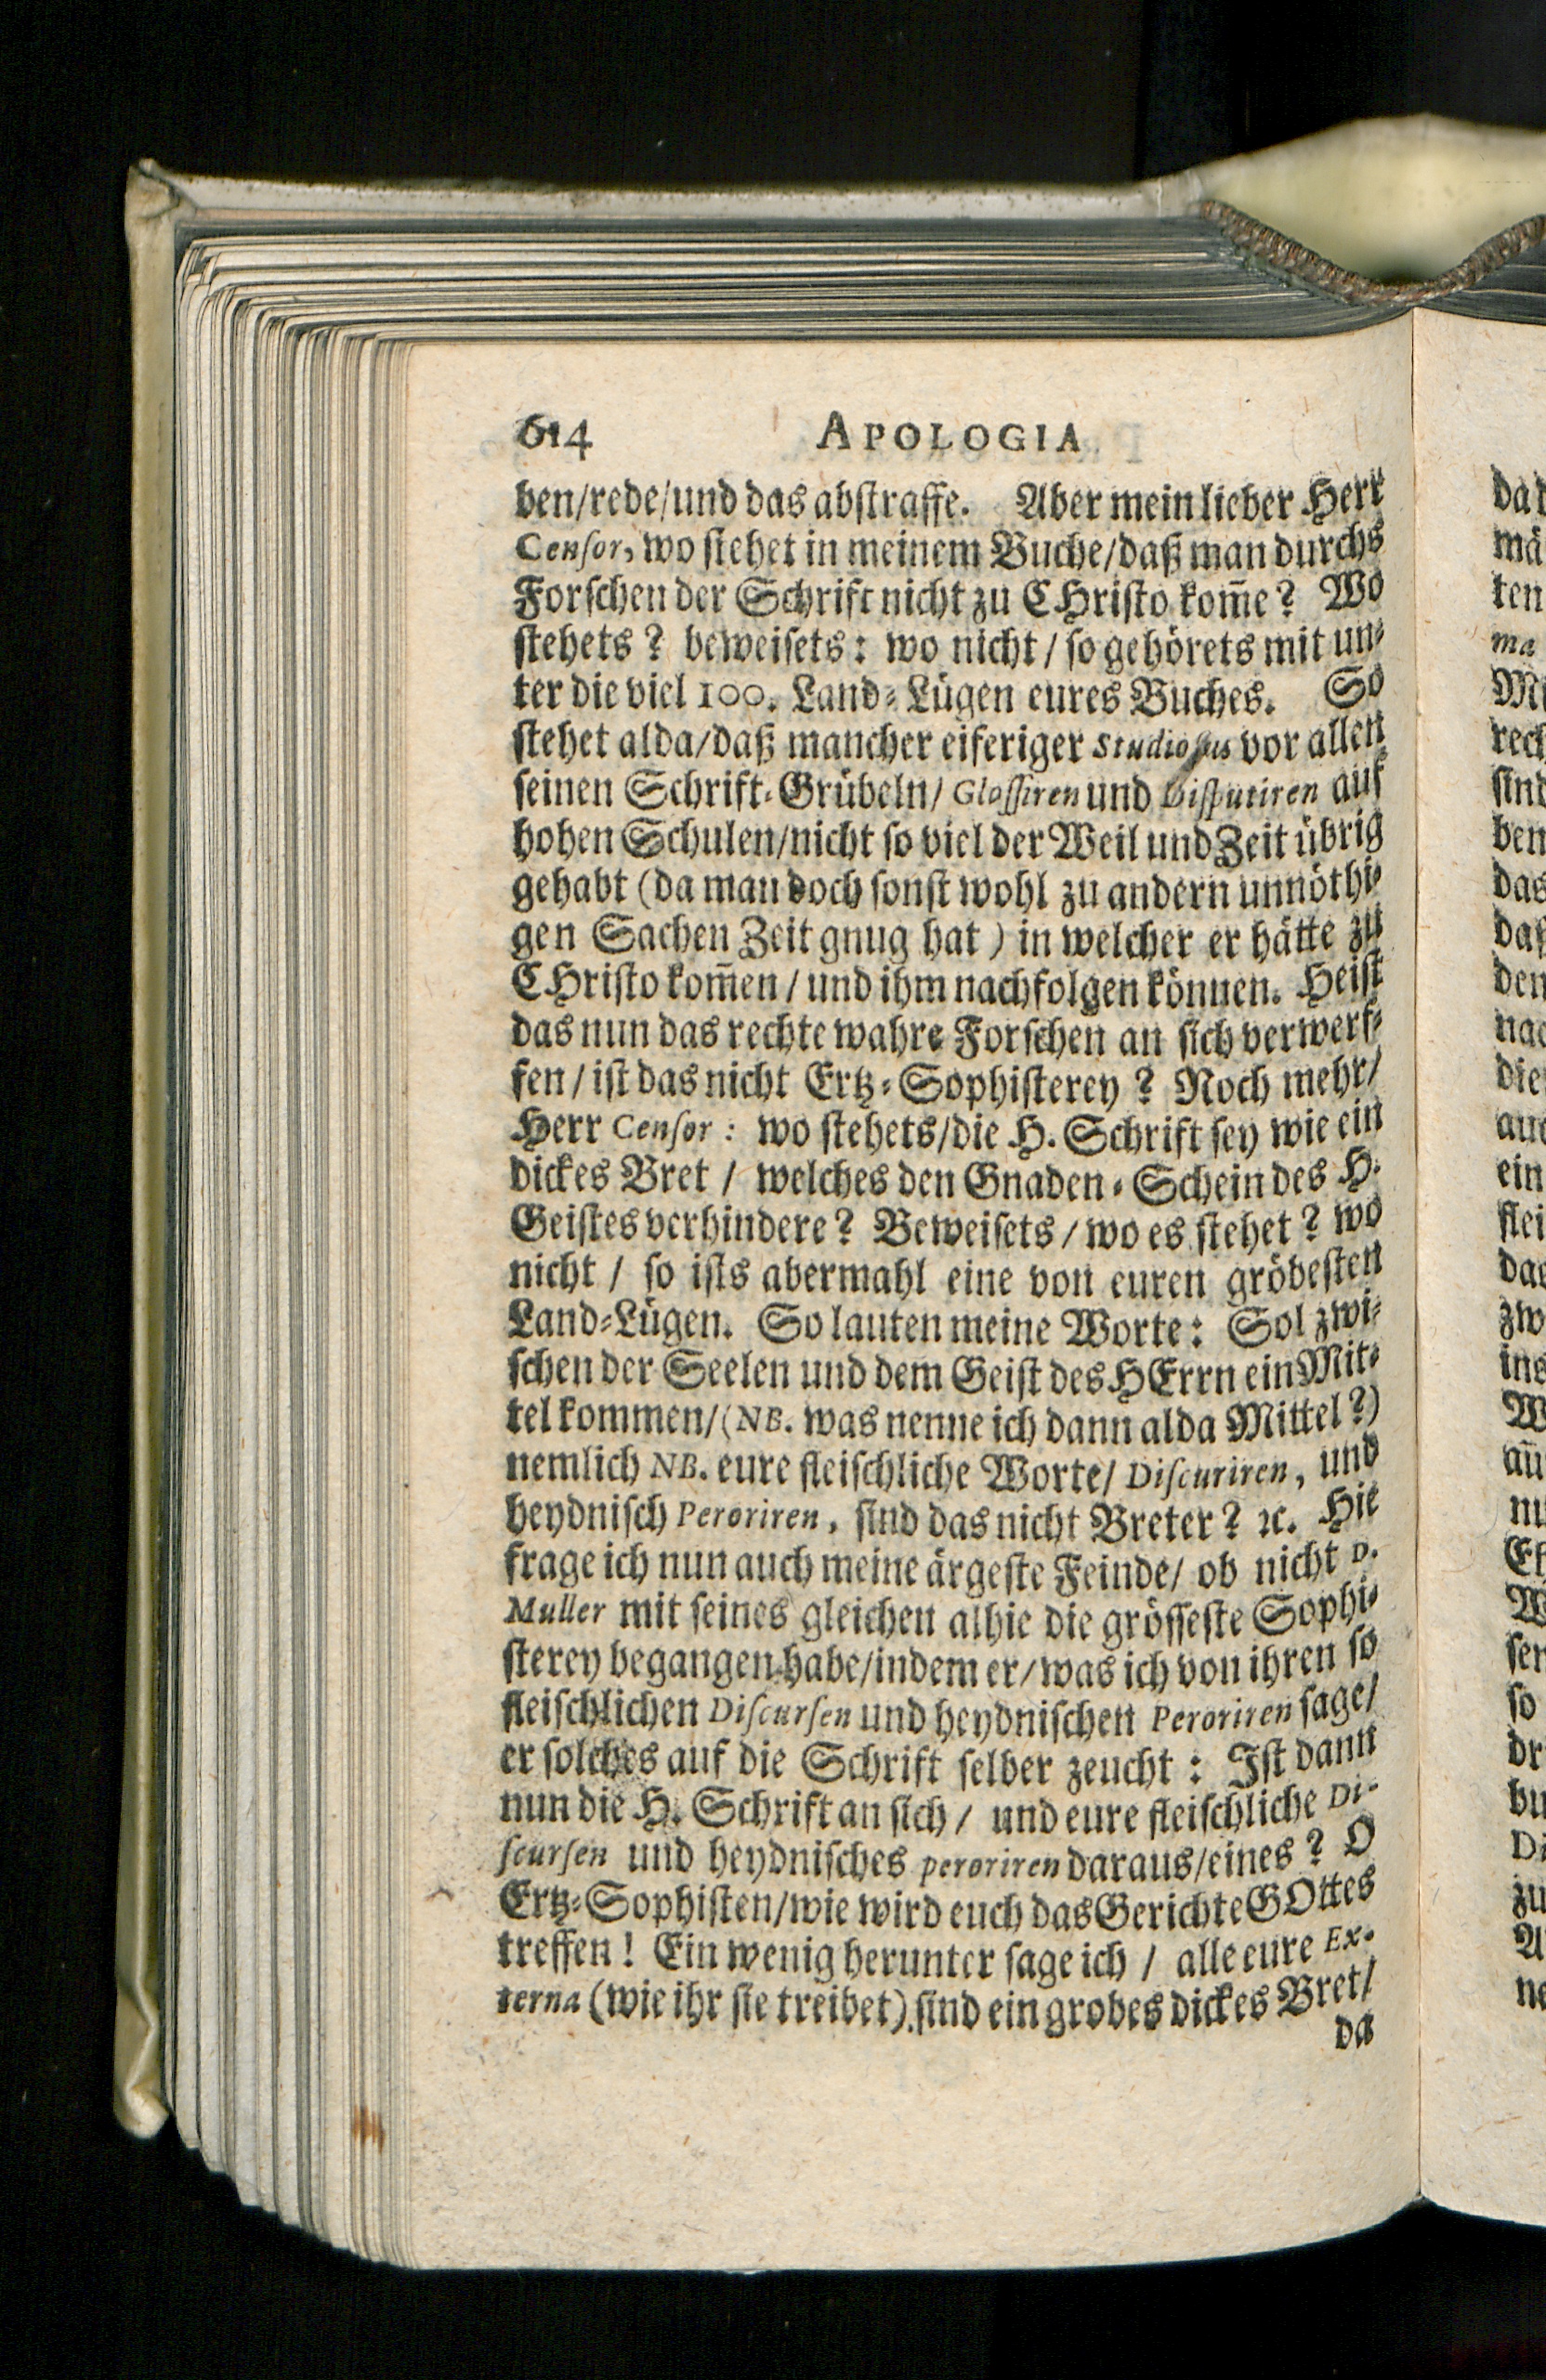 614 APOLOGIA
ben/rede/und das abstraffe. Aber mein lieber Herr
Censor, wo stehet in meinem Buche/daß man durchs
Forschen der Schrift nicht zu CHristo kom̃e? Wo
stehets? beweisets: wo nicht / so gehörets mit un-
ter die viel 100. Land-Lügen eures Buches. So
stehet alda/daß mancher eiferiger Studiosus vor allen
seinen Schrift-Grübeln/ Glossiren und Disputiren auf
hohen Schulen/nicht so viel der Weil und Zeit übrig
gehabt (da man doch sonst wohl zu andern unnöthi-
gen Sachen Zeit gnug hat) in welcher er hätte zu
CHristo kom̃en / und ihm nachfolgen können. Heist
das nun das rechte wahre Forschen an sich verwerf-
fen / ist das nicht Ertz-Sophisterey? Noch mehr/
Herr Censor: wo stehets/die H. Schrift sey wie ein
dickes Bret / welches den Gnaden-Schein des H.
Geistes verhindere? Beweisets / wo es stehet? wo
nicht / so ists abermahl eine von euren gröbesten
Land-Lügen. So lauten meine Worte: Sol zwi-
schen der Seelen und dem Geist des HErrn ein Mit-
tel kommen/(NB. was nenne ich dann alda Mittel?)
nemlich NB. eure fleischliche Worte/ Discuriren, und
heydnisch Peroriren, sind das nicht Breter? ꝛc. Hie
frage ich nun auch meine ärgeste Feinde/ ob nicht D.
Muller mit seines gleichen alhie die grösseste Sophi-
sterey begangen habe/indem er/was ich von ihren so
fleischlichen Discursen und heydnischen Peroriren sage/
er solches auf die Schrift selber zeucht: Ist dann
nun die H. Schrift an sich / und eure fleischliche Di-
scursen und heydnisches peroriren daraus/eines? O
Ertz-Sophisten/wie wird euch das Gerichte GOttes
treffen! Ein wenig herunter sage ich / alle eure Ex-
terna (wie ihr sie treibet) sind ein grobes dickes Bret/
da